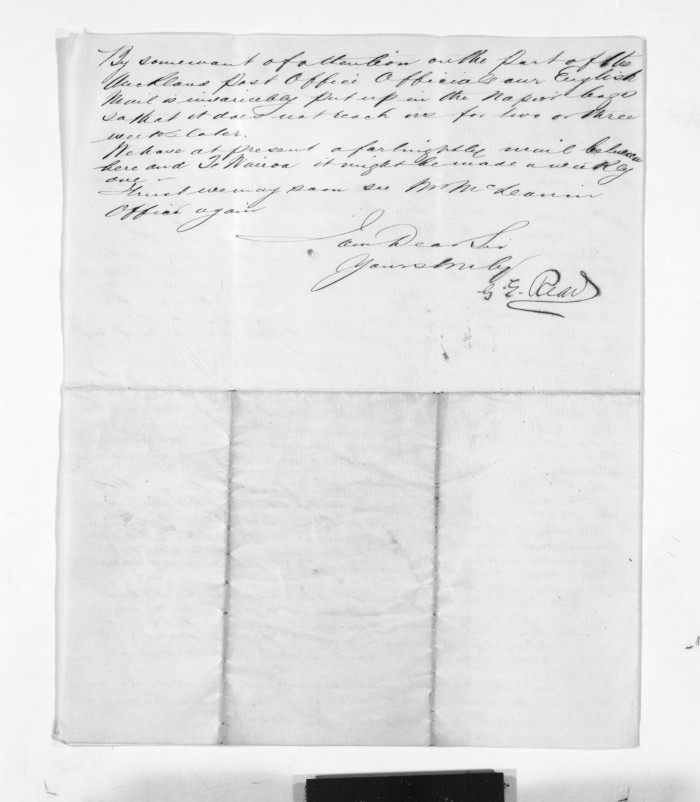 By some want of attention on the part of the
Auckland Post Office Officials our English
Mail is invariably put up in the Napier bags
so that it does not reach us for two or three
weeks later.
We have at present a fortnightly mail between
here and Te Wairoa it might be made a weekly
one.
I trust we may soon see Mr McLean in
Office again
I am Dear Sir
Yours truly
G. E. Read